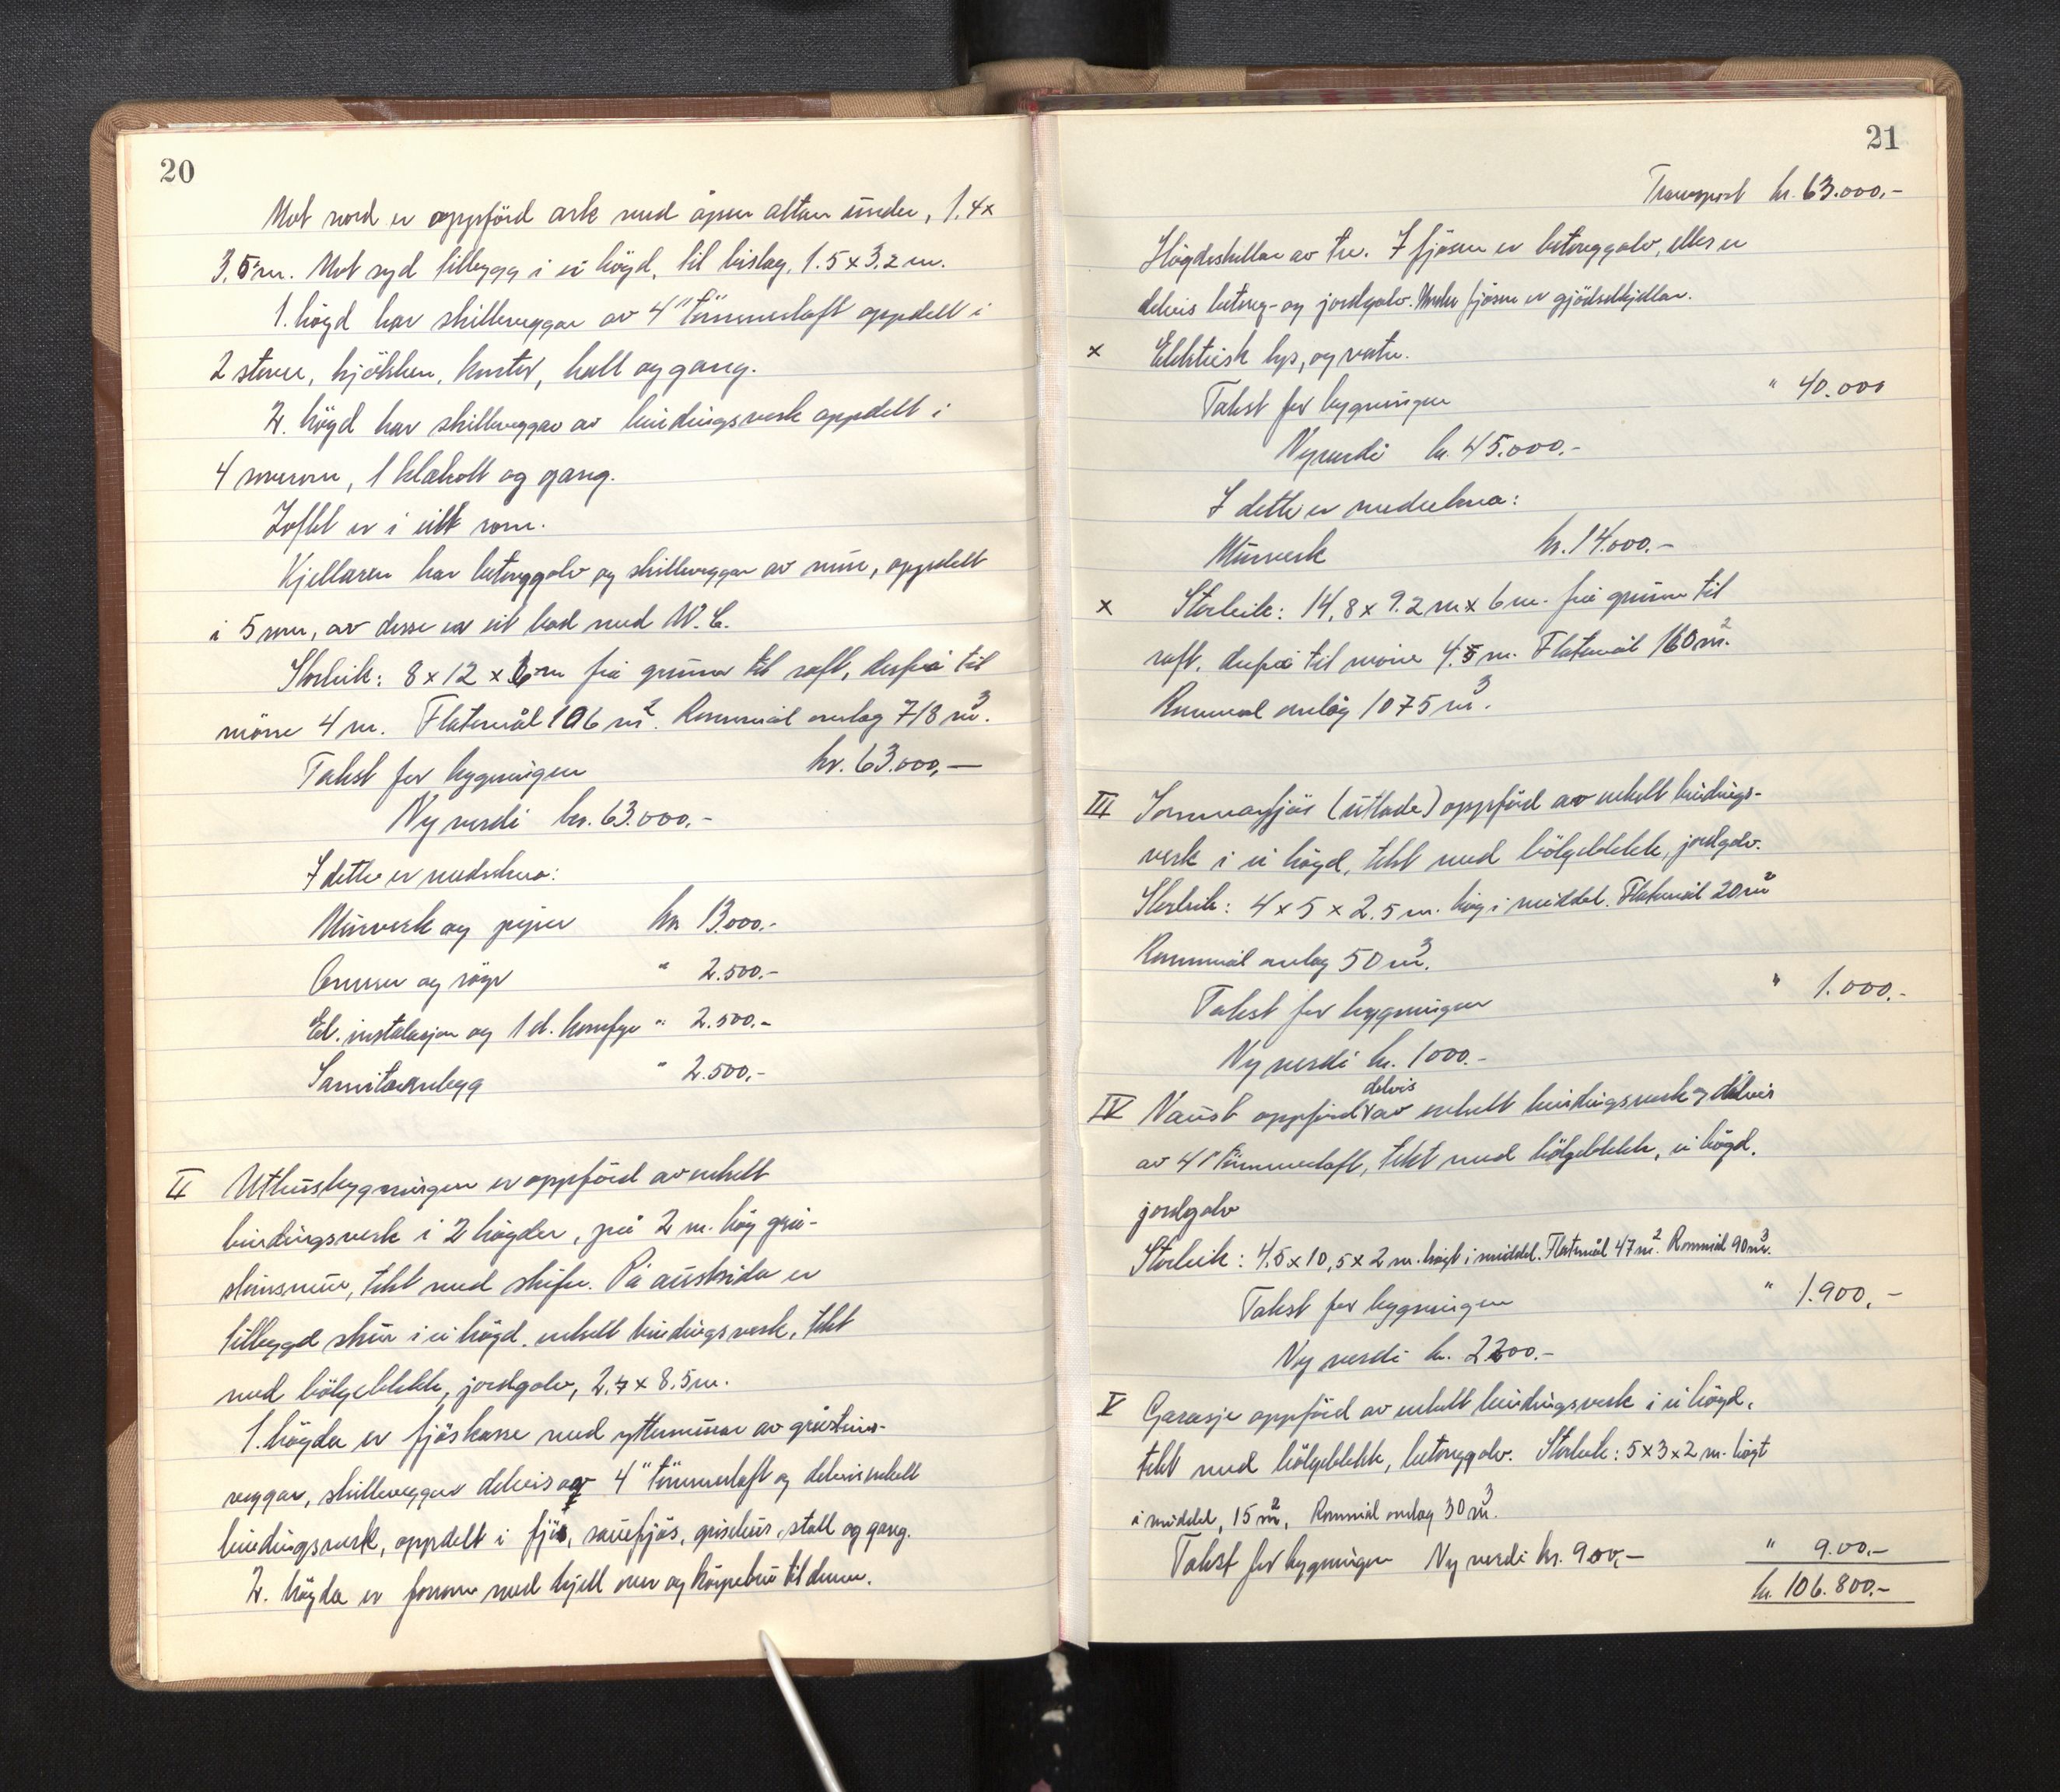 20
Mot nord er oppförd ark med åpen altan under, 1.4 x
3.5 m. Mot syd tilbygg i ei högd, til bislag, 1.5 x 3.2 m.
1. högd har skilleveggar av 4" tömmerloft oppdelt i
2 stover, kjökken, kontor, hall og gang.
2. högd har skilleveggar av bindingsverk oppdelt i
4 soverom, 1 klekott og gang.
Loftet er i eitt rom.
Kjellaren har betonggolv og skilleveggar av mur, oppdelt
i 5 rom, av desse er eit bad med W.C.
Storleik: 8 x 12 x 6 m frå grunn til raft, derfrå til
möne 4 m. Flatemål 106 m². Rommål omlag 718 m³.
Takst for bygningen kr. 63.000,—
Ny verdi kr. 63.000.-
I dette er medrekna:
Murverk og piper kr 13.000.-
Omner og röyr " 2.500.-
El. instalasjon og 1 el. komfyr " 2.500.-
Sanitæranlegg " 2.500,-
II Uthusbygningen er oppförd av enkelt
bindingsverk i 2 högder, på 2 m. höy grå-
steinsmur, tekt med skifer. På austsida er
tilbygd skur i ei högd, enkelt bindingsverk, tekt
med bölgeblekk, jordgolv, 2.4 x 8.5 m.
1. högda er fjöskasse med yttermurar av gråsteins-
veggar, skilleveggar delvis av 4" tömmerloft og delvis enkelt
bindingsverk, oppdelt i fjös, sauefjös, grisehus, stall og gang.
2. högda er forrom med hjell over og köyrebru til denne.
21
Transport kr. 63.000,-
Högdeskillar av tre. I fjösen er betonggolv, elles er
delvis betong- og jordgolv. Under fjösen er gjödselkjellar.
x Elektrisk lys, og vatn.
Takst for bygningen " 40.000
Nyverdi kr. 45.000.-
I dette er medrekna:
Murverk kr. 14.000.-
x Storleik: 14,8 x 9.2 m x 6 m. frå grunn til
raft, derfrå til möne 4.5 m. Flatemål 160 m².
Rommål omlag 1075 m³.
III Sommarfjös (utlade) oppförd av enkelt bindings-
verk i ei högd, tekt med bölgeblekk, jordgolv.
Storleik: 4 x 5 x 2.5 m. høg i middel. Flatemål 20 m²
Rommål omlag 50 m³.
Takst for bygningen " 1.000.-
Ny verdi kr. 1000.-
delvis
IV Naust oppförd av enkelt bindingsverk og delvis
av 4" tömmerloft, tekt med bölgeblekk, ei högd,
jordgolv
Storleik: 4.5 x 10,5 x 2 m. högt i middel. Flatemål 47 m². Rommål 90 m³.
Takst for bygningen " 1.900,-
Ny verdi kr. 2200.-
V Garasje oppförd av enkelt bindingsverk i ei högd,
tekt med bölgeblekk, betonggolv. Storleik: 5 x 3 x 2 m. högt
i middel, 15 m², Rommål omlag 30 m³.
Takst for bygningen Ny verdi kr. 900,- " 9.00,-
kr. 106.800.-